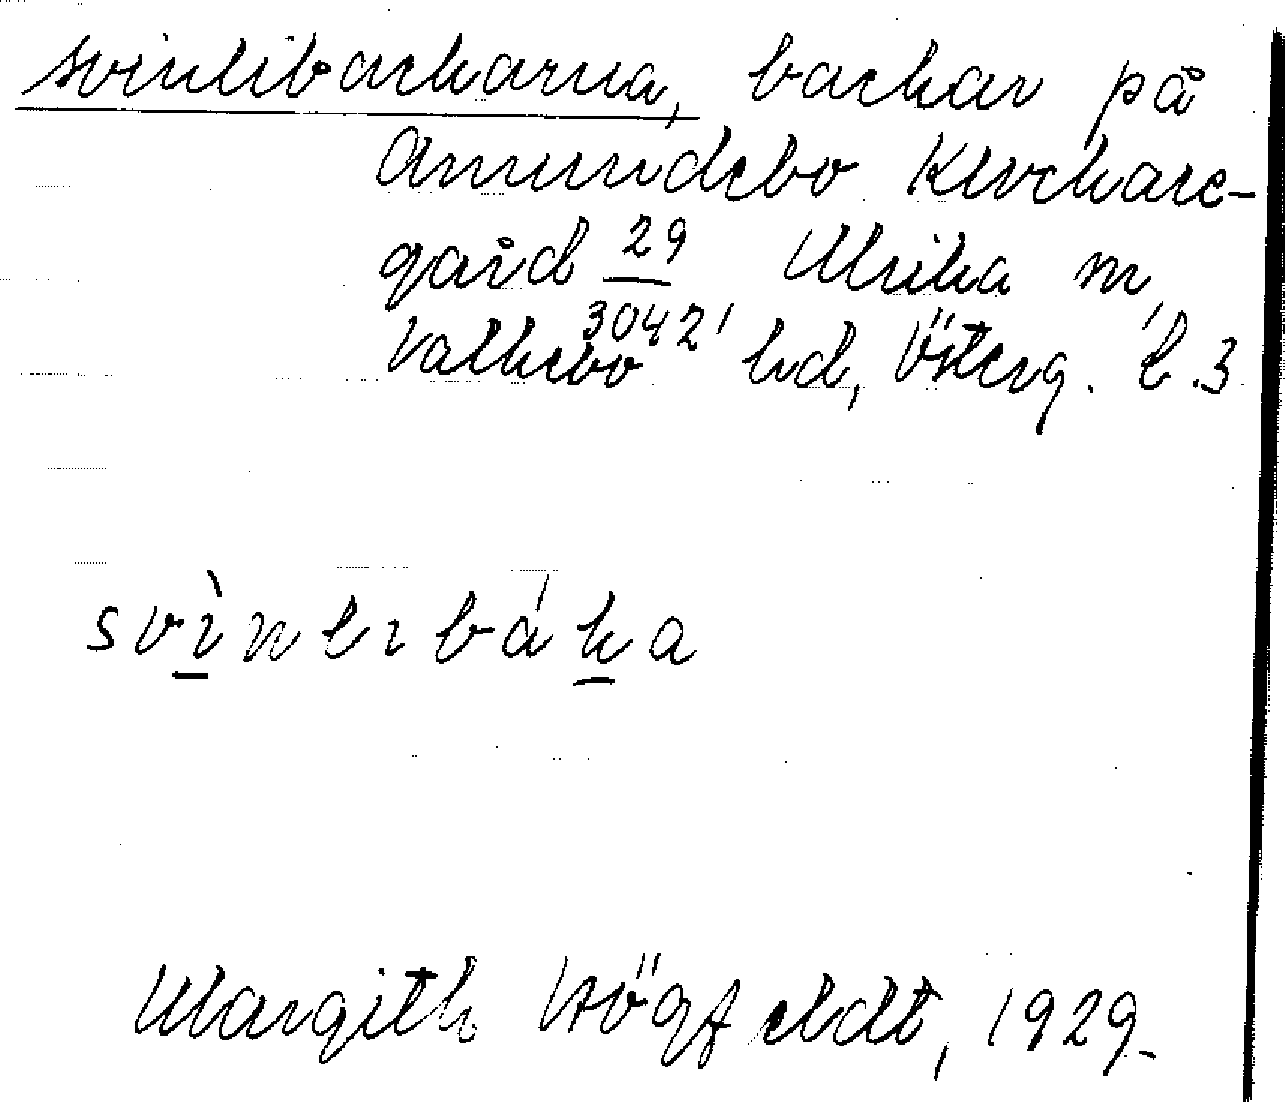 svinlibackarna, backar på
Amundebo Klockare-
gård 29/3042 Ulrika sn,
Valkebo hd, Österg. l. 3
svinlibáka
Margith Högfeldt, 1929.